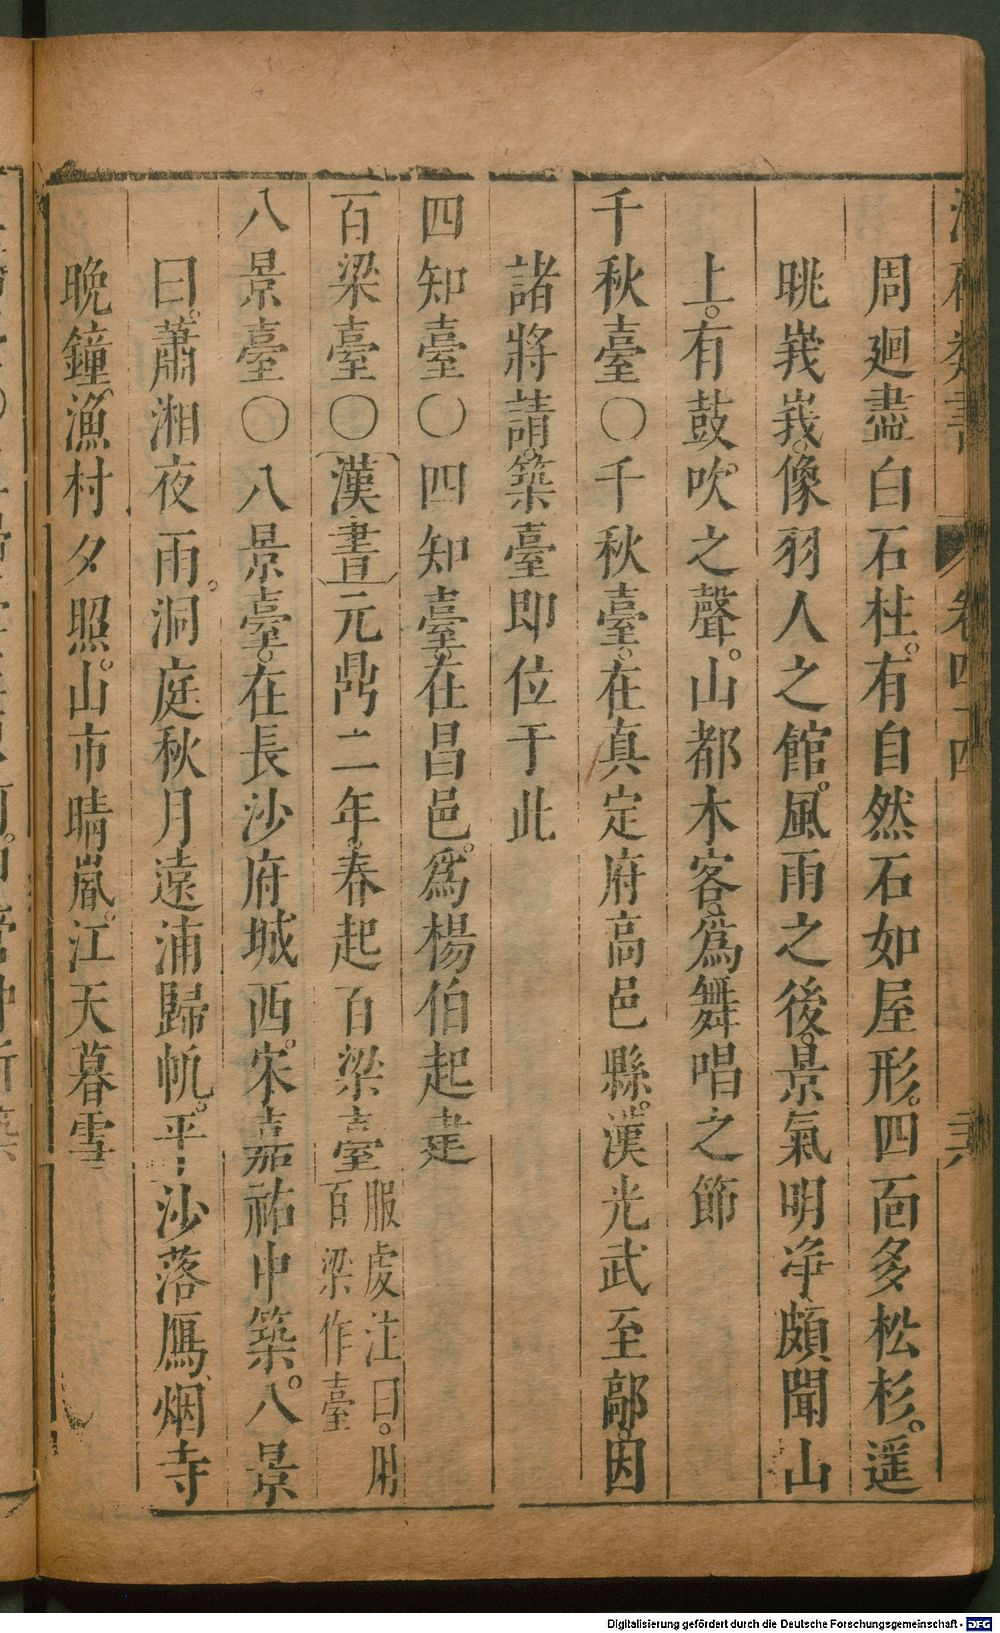 卷四十四
周廻盡白石柱。有自然石如屋形。四面多松杉。遥
眺峩峩。像羽人之館。風雨之後。景氣明净。頗聞山
上。有鼓吹。之聲。山都木客。爲舞唱之節
千秋臺〇千秋臺。在真定府高邑縣。漢光武至鄗。因
諸將請。築臺即位于此
四知臺〇四知臺。在昌邑。爲楊伯起建
百梁臺〇漢書元鼎二年。春起百梁臺服虔注曰。用百梁作臺
八景臺〇八景臺。在長沙府城西。宋嘉祐中築。八景
曰。蕭湘夜雨。洞庭秋月遠浦歸帆。平沙落鴈、烟寺
晚鐘、漁村夕照。山市晴嵐。江天暮雪
Digitalisierung gefördert durch die Deutsche Forschungsgemeinschaft - DFG